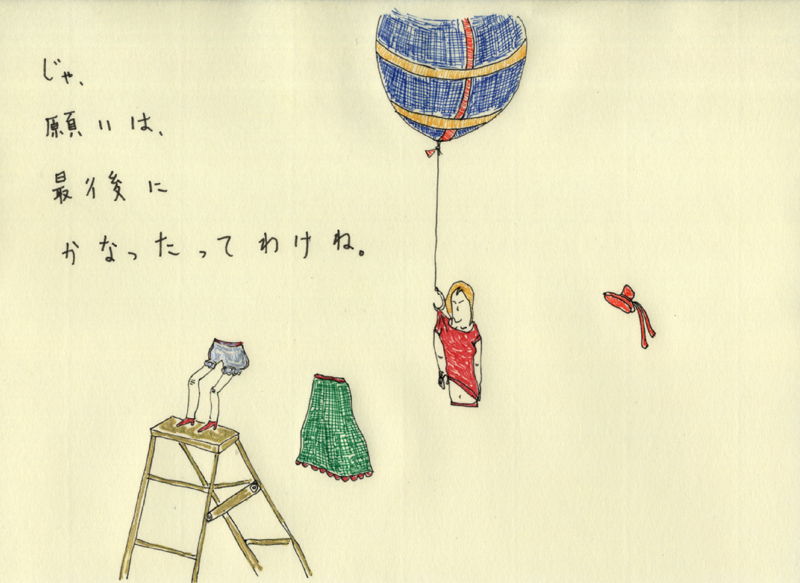 じゃ、
願いは、
最後に
かなったってわけね。